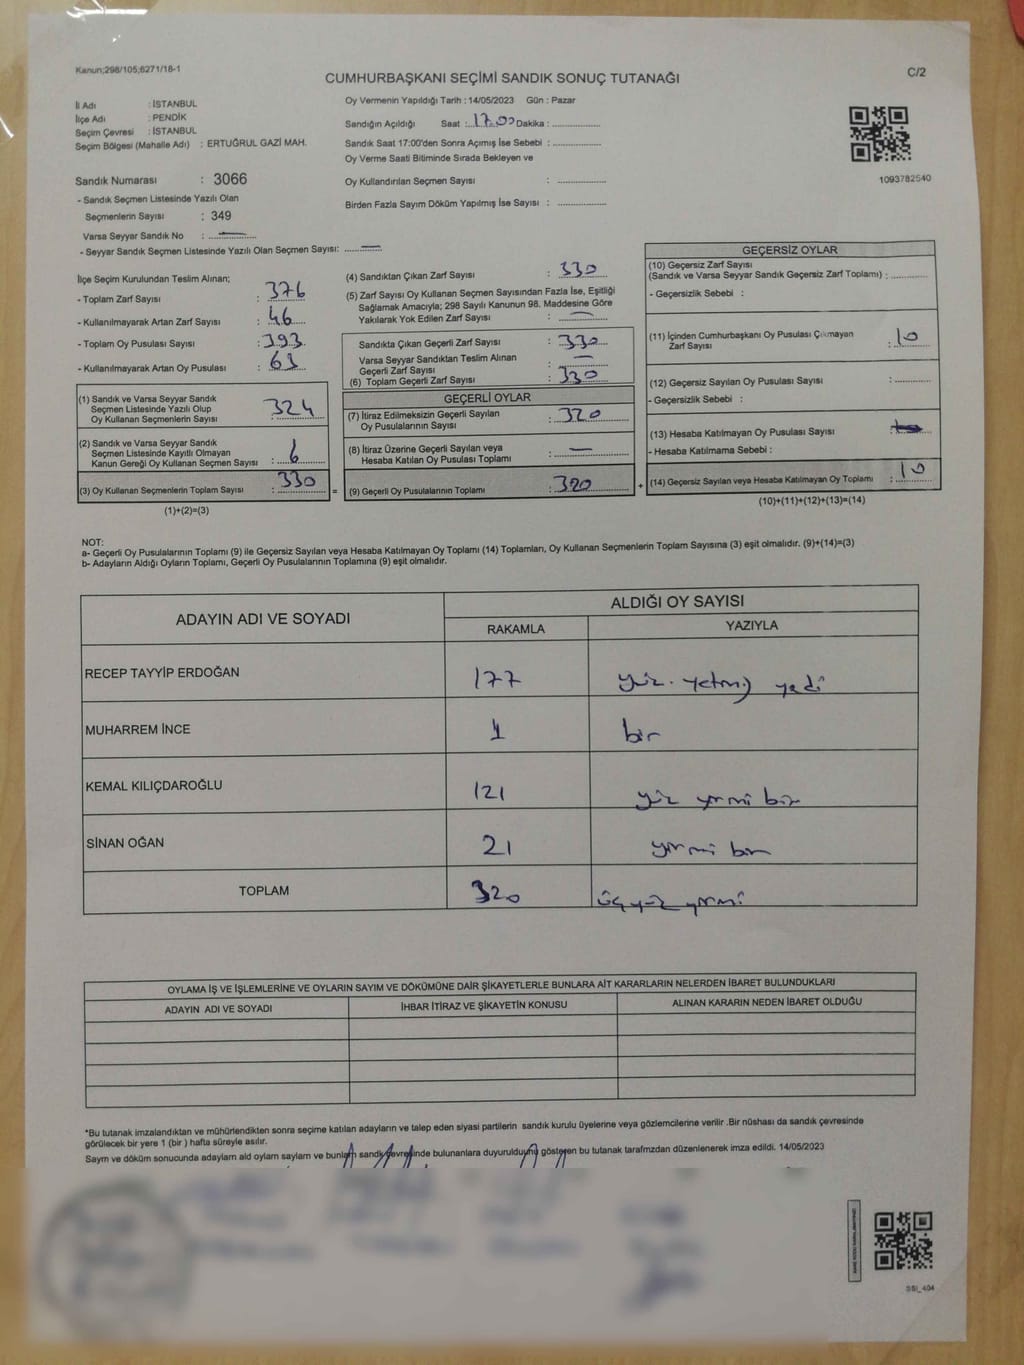 Kanun;298/105;6271/18-1
C/2
CUMHURBAŞKANI SEÇİMİ SANDIK SONUÇ TUTANAĞI
İl Adı : İSTANBUL
İlçe Adı : PENDİK
Seçim Çevresi : İSTANBUL
Seçim Bölgesi (Mahalle Adı) : ERTUĞRUL GAZİ MAH.
Sandık Numarası : 3066
- Sandık Seçmen Listesinde Yazılı Olan
Seçmenlerin Sayısı : 349
Varsa Seyyar Sandık No :
- Seyyar Sandık Seçmen Listesinde Yazılı Olan Seçmen Sayısı:
Oy Vermenin Yapıldığı Tarih : 14/05/2023 Gün : Pazar
Sandığın Açıldığı Saat : 17.00 Dakika :
Sandık Saat 17:00'den Sonra Açımış İse Sebebi :
Oy Verme Saati Bitiminde Sırada Bekleyen ve
Oy Kullandırılan Seçmen Sayısı :
Birden Fazla Sayım Döküm Yapılmış İse Sayısı :
1093782540
İlçe Seçim Kurulundan Teslim Alınan;
- Toplam Zarf Sayısı : 376
- Kullanılmayarak Artan Zarf Sayısı : 46
- Toplam Oy Pusulası Sayısı : 393
- Kullanılmayarak Artan Oy Pusulası : 63
(1) Sandık ve Varsa Seyyar Sandık
Seçmen Listesinde Yazılı Olup
Oy Kullanan Seçmenlerin Sayısı : 324
(2) Sandık ve Varsa Seyyar Sandık
Seçmen Listesinde Kayıtlı Olmayan
Kanun Gereği Oy Kullanan Seçmen Sayısı : 6
(3) Oy Kullanan Seçmenlerin Toplam Sayısı : 330
(1)+(2)=(3)
(4) Sandıktan Çıkan Zarf Sayısı : 330
(5) Zarf Sayısı Oy Kullanan Seçmen Sayısından Fazla İse, Eşitliği
Sağlamak Amacıyla; 298 Sayılı Kanunun 98. Maddesine Göre
Yakılarak Yok Edilen Zarf Sayısı :
Sandıkta Çıkan Geçerli Zarf Sayısı : 330
Varsa Seyyar Sandıktan Teslim Alınan
Geçerli Zarf Sayısı :
(6) Toplam Geçerli Zarf Sayısı : 330
GEÇERLİ OYLAR
(7) İtiraz Edilmeksizin Geçerli Sayılan
Oy Pusulalarının Sayısı : 320
(8) İtiraz Üzerine Geçerli Sayılan veya
Hesaba Katılan Oy Pusulası Toplamı :
= (9) Geçerli Oy Pusulalarının Toplamı : 320 +
GEÇERSİZ OYLAR
(10) Geçersiz Zarf Sayısı
(Sandık ve Varsa Seyyar Sandık Geçersiz Zarf Toplamı) :
- Geçersizlik Sebebi :
(11) İçinden Cumhurbaşkanı Oy Pusulası Çıkmayan
Zarf Sayısı : 10
(12) Geçersiz Sayılan Oy Pusulası Sayısı :
- Geçersizlik Sebebi :
(13) Hesaba Katılmayan Oy Pusulası Sayısı :
- Hesaba Katılmama Sebebi :
(14) Geçersiz Sayılan veya Hesaba Katılmayan Oy Toplamı : 10
(10)+(11)+(12)+(13)=(14)
NOT:
a- Geçerli Oy Pusulalarının Toplamı (9) ile Geçersiz Sayılan veya Hesaba Katılmayan Oy Toplamı (14) Toplamları, Oy Kullanan Seçmenlerin Toplam Sayısına (3) eşit olmalıdır. (9)+(14)=(3)
b- Adayların Aldığı Oyların Toplamı, Geçerli Oy Pusulalarının Toplamına (9) eşit olmalıdır.
ADAYIN ADI VE SOYADI
ALDIĞI OY SAYISI
RAKAMLA YAZIYLA
RECEP TAYYİP ERDOĞAN 177 yüz yetmiş yedi
MUHARREM İNCE 1 bir
KEMAL KILIÇDAROĞLU 121 yüz yirmi bir
SİNAN OĞAN 21 yirmi bir
TOPLAM 320 üç yüz yirmi
OYLAMA İŞ VE İŞLEMLERİNE VE OYLARIN SAYIM VE DÖKÜMÜNE DAİR ŞİKAYETLERLE BUNLARA AİT KARARLARIN NELERDEN İBARET BULUNDUKLARI
ADAYIN ADI VE SOYADI İHBAR İTİRAZ VE ŞİKAYETİN KONUSU ALINAN KARARIN NEDEN İBARET OLDUĞU
*Bu tutanak imzalandıktan ve mühürlendikten sonra seçime katılan adayların ve talep eden siyasi partilerin sandık kurulu üyelerine veya gözlemcilerine verilir .Bir nüshası da sandık çevresinde
görülecek bir yere 1 (bir ) hafta süreyle asılır.
Sayım ve döküm sonucunda adayların ald oyların sayları ve bunların sandık çevresinde bulunanlara duyurulduğunu gösteren bu tutanak tarafımızdan düzenlenerek imza edildi. 14/05/2023
SSI_404